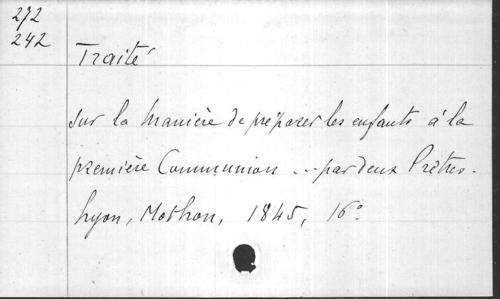 272
242
Traité
sur la manière de préparer les enfants à la
première Communion ... par deux Prêtres.
Lyon, Mothon, 1845, 16°